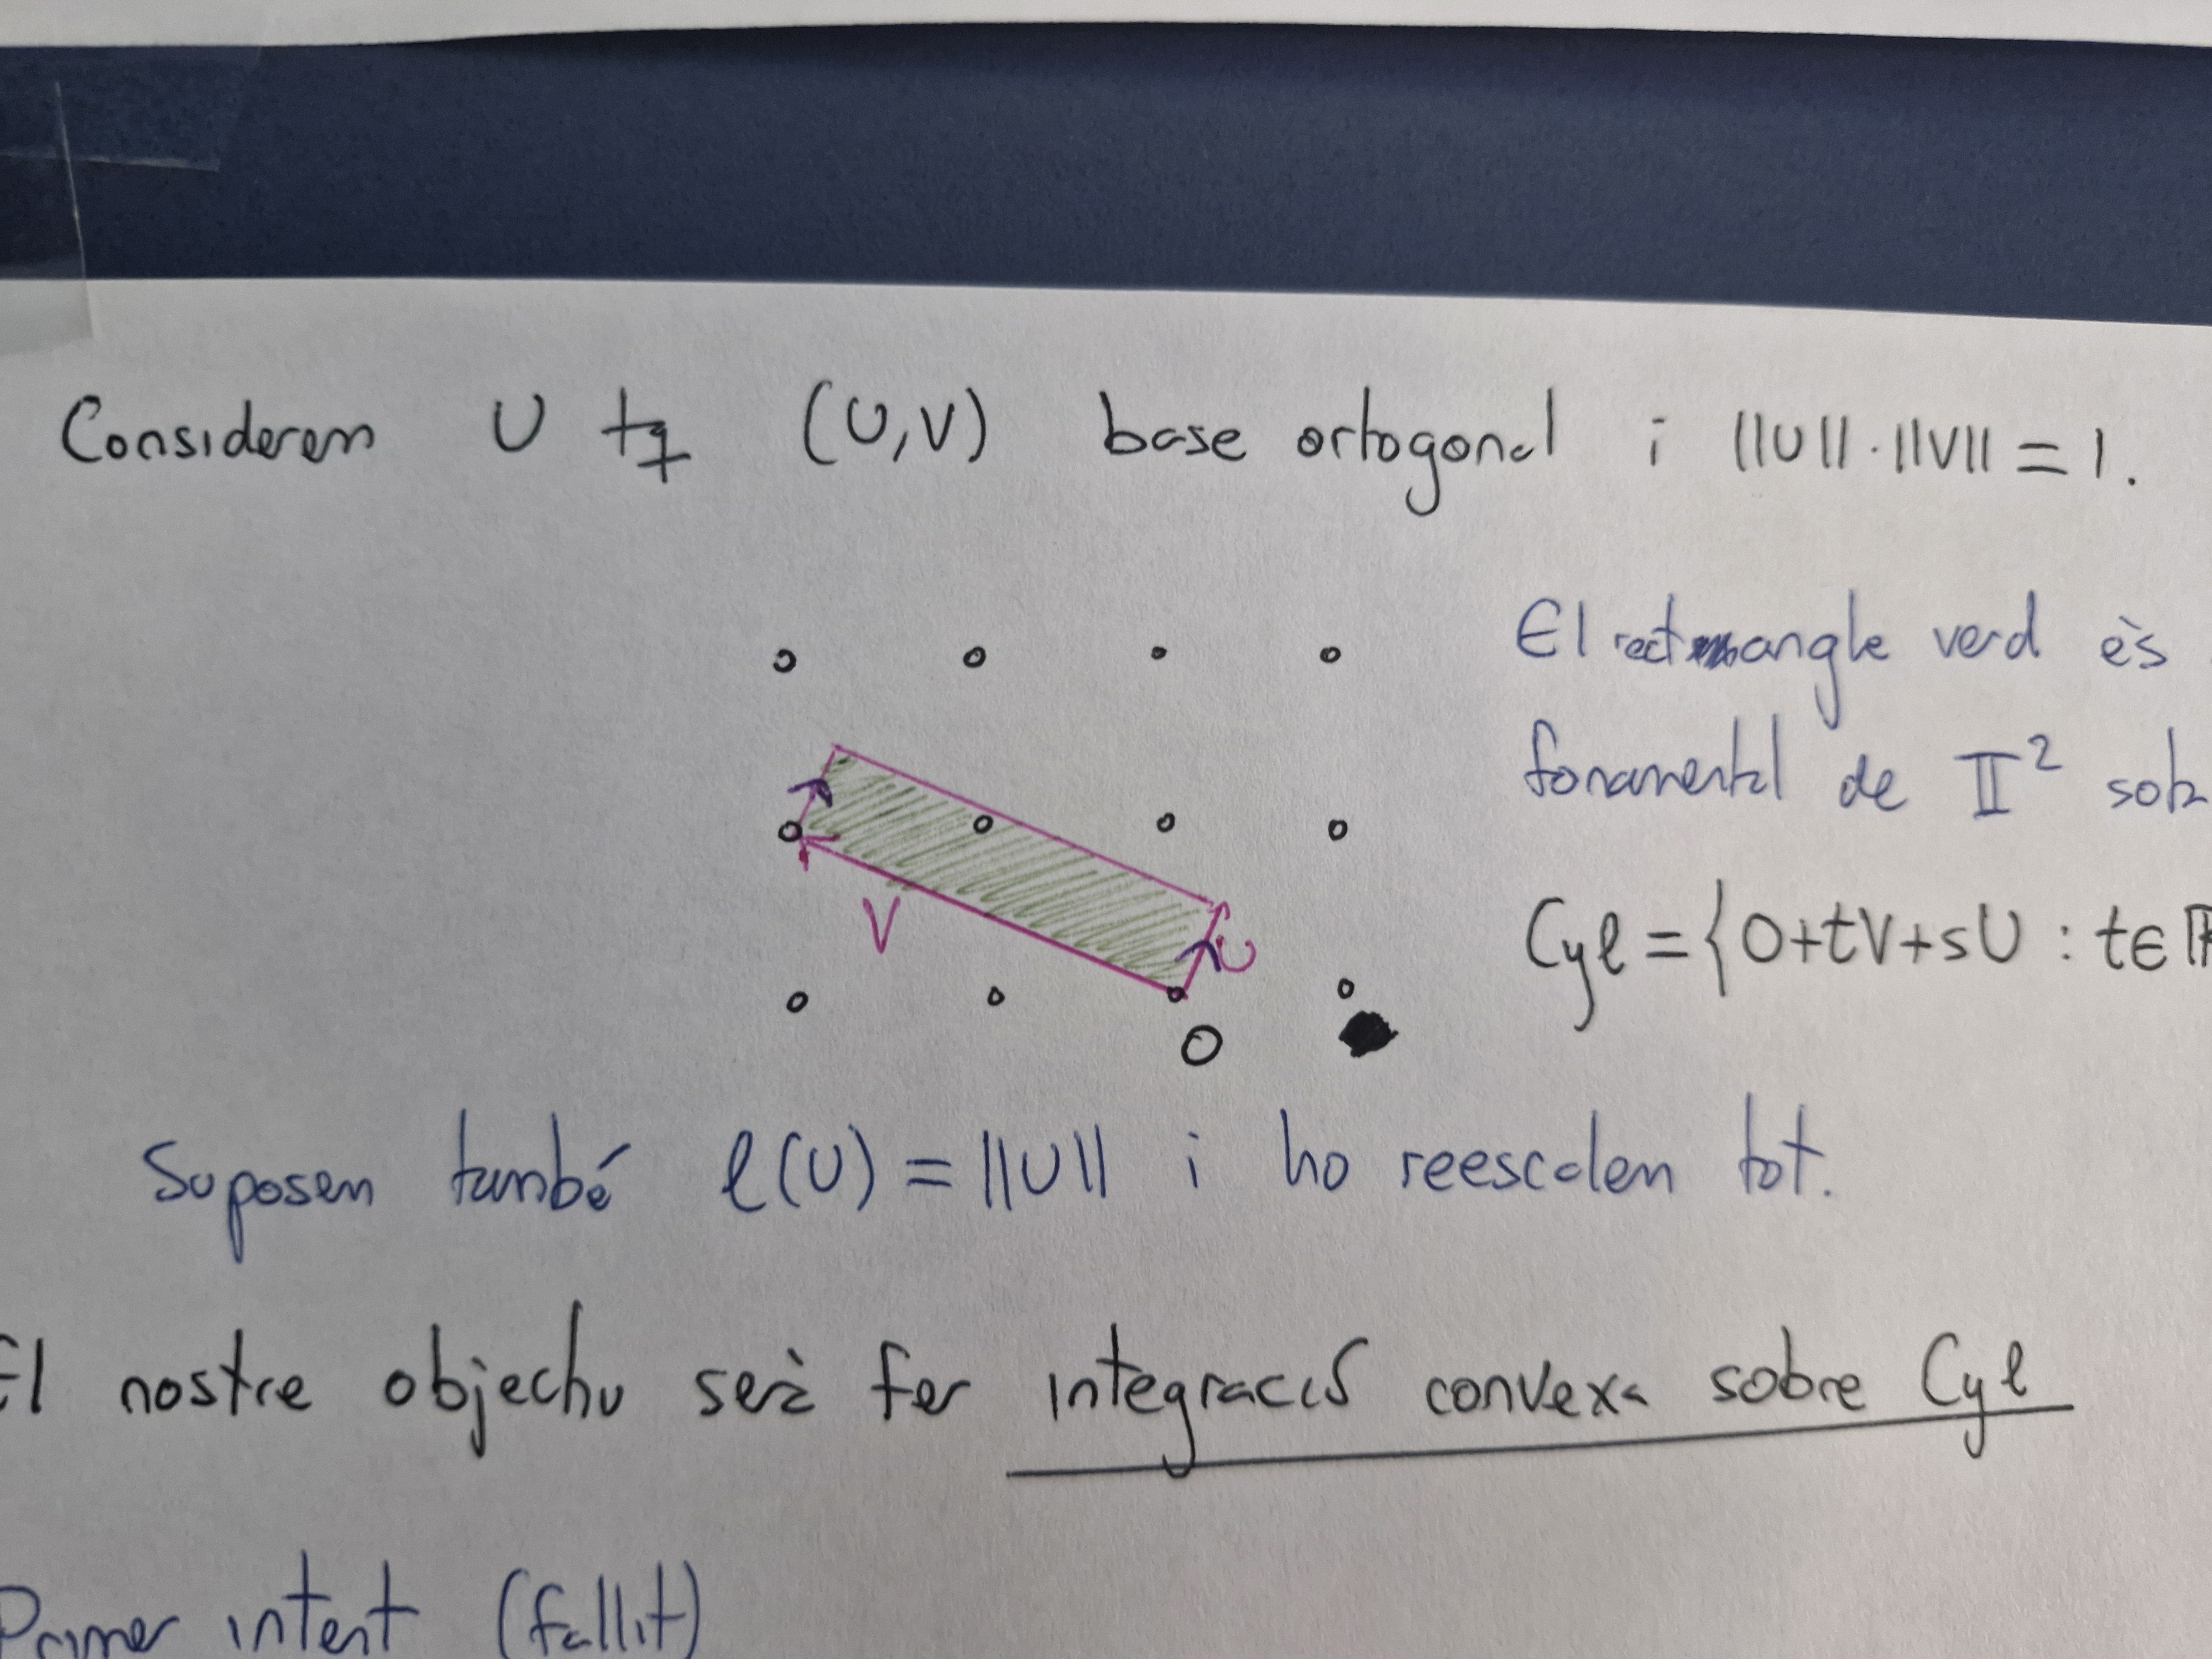 Considerem U tq (U,V) base ortogonal i ||U||·||V|| = 1.
El rectangle verd és
fonamental de 𝕋² sob
V
U
Cyl = {O+tV+sU : t∈ℝ
O
Suposem també ℓ(U) = ||U|| i ho reescalem tot.
El nostre objectiu serà fer integració convexa sobre Cyl
Primer intent (fallit)